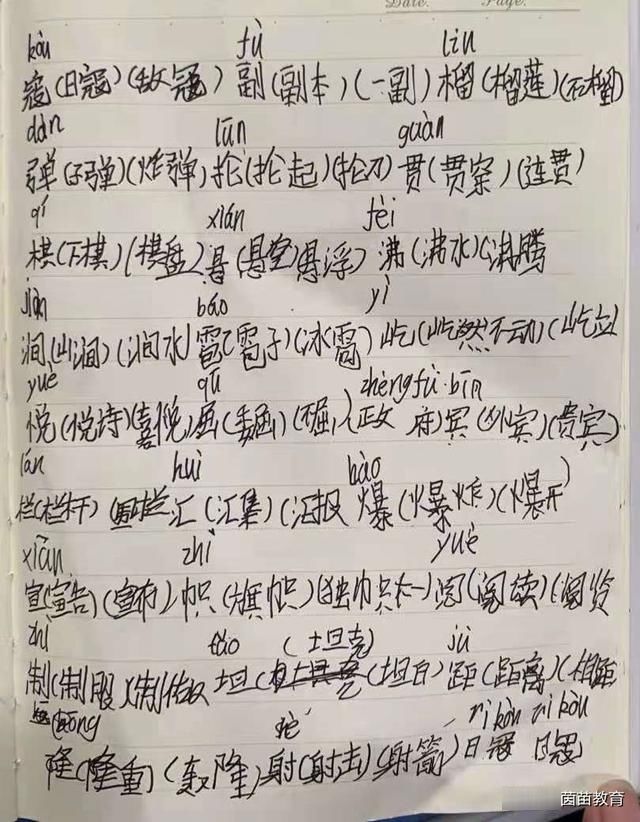 Date. Page.
kòu fù liu
寇(日寇)(敌寇) 副(副本)(一副) 榴(榴莲)(石榴)
dàn lūn guàn
弹(子弹)(炸弹) 抡(抡起)(抡刀) 贯(贯穿)(连贯)
qí xián fèi
棋(下棋)(棋盘) 悬(悬空)(悬浮) 沸(沸水)(沸腾
jiàn báo yì
涧(山涧)(涧水) 雹(雹子)(冰雹) 屹(屹然不动)(屹立
yuè qū zhèng fǔ bīn
悦(悦诗)(喜悦) 屈(委屈)(不屈) (政府) 宾(外宾)(贵宾)
lán huì bào
栏(栏杆) 围栏 汇(汇集)(汇报 爆(爆炸)(爆开)
xiān zhì yuè
宣(宣告)(宣布) 帜(旗帜)(独帜一) 阅(阅读)(阅览
zhì tǎo (坦克) jù
制(制服)(制做 坦( (坦白) 距(距离)(相距
隆(隆重)(轰隆) 射(射击)(射箭) rì kòu rì kòu
日寇 日寇
茵苗教育